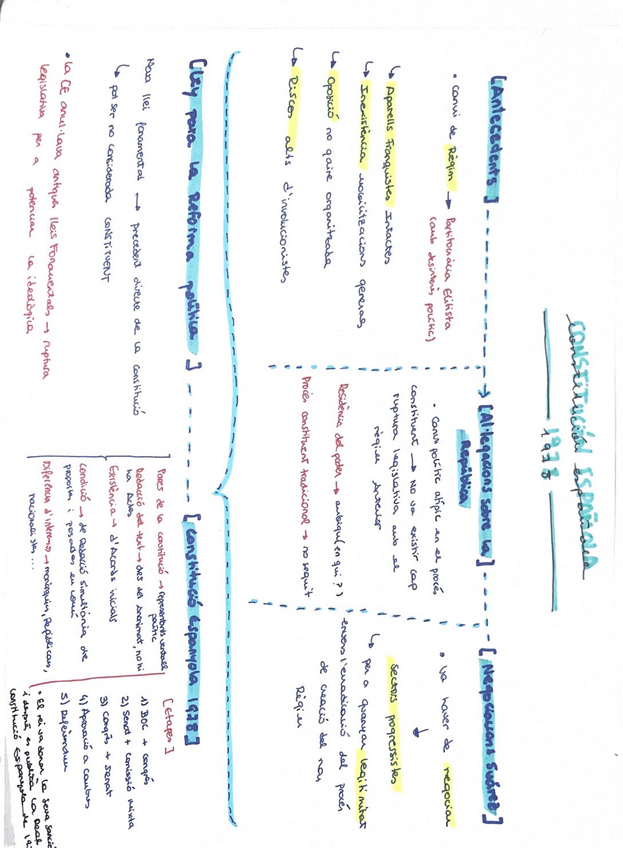 CONSTITUCIÓN ESPAÑOLA
1978
[Antecedents]
• canvi de Règim → Partitocràcia Elitista
(amb desinterès polític)
↳ Aparells Franquistes Intactes
↳ Inexistència mobilitzacions generals
↳ Oposició no gaire organitzada
↳ Riscos alts d'involucionistes
[Al·legacions sobre la
República]
• canvi polític atípic en el procés
constituent → No va existir cap
ruptura legislativa amb el
règim anterior
Residència del poder → ambigu (en qui??)
Procés constituent tradicional → no seguit
[Negociacions Suárez]
• Va haver de negociar
↓
sectors progressistes
↳ per a guanyar legitimitat
envers l'enunciació del procés
de creació del nou
Règim
[Ley para la Reforma política]
Nova llei fonamental → precedent directe de la constitució
↳ pot ser no considerada CONSTITUENT
• La CE anul·lava antigues lleis Fonamentals → ruptura
legislativa per a potenciar la ideològica
[Constitució Espanyola 1978]
Pares de la constitució → representants
polític
Redacció del text → des de anonimat, no hi
ha Actes
Existència → d'Acords inicials
Condició → de Redacció simultània de
propostes i posades en comú
Diferència d'interessos → monàrquics, Repúblicans,
nacionalistes...
[etapes]
1) BOC + congrés
2) Senat + comissió mixta
3) Congrés + senat
4) Aprovació a cambres
5) Referèndum
• El rei va donar la seva sanció
i després es publicà la
constitució Espanyola de